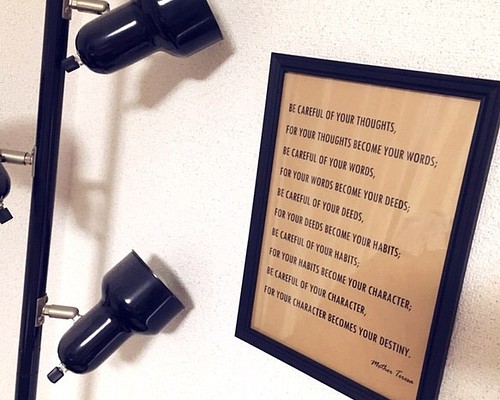 BE CAREFUL OF YOUR THOUGHTS,
FOR YOUR THOUGHTS BECOME YOUR WORDS;
BE CAREFUL OF YOUR WORDS,
FOR YOUR WORDS BECOME YOUR DEEDS;
BE CAREFUL OF YOUR DEEDS,
FOR YOUR DEEDS BECOME YOUR HABITS;
BE CAREFUL OF YOUR HABITS;
FOR YOUR HABITS BECOME YOUR CHARACTER;
BE CAREFUL OF YOUR CHARACTER,
FOR YOUR CHARACTER BECOMES YOUR DESTINY.
Mother Teresa